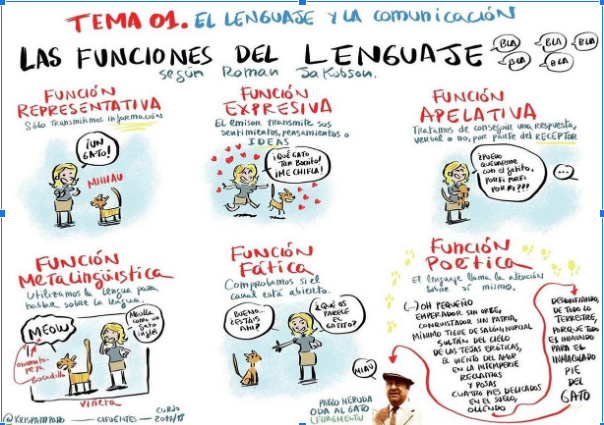 TEMA 01. EL LENGUAJE Y LA COMUNICACIÓN
LAS FUNCIONES DEL LENGUAJE
según Roman Jakobson.
BLA
BLA
BLA
BLA
BLA
FUNCIÓN
REPRESENTATIVA
Sólo transmitimos información
¡UN
GATO!
MIIIAU
FUNCIÓN
EXPRESIVA
El emisor transmite sus
sentimientos, pensamientos o
IDEAS
¡QUÉ GATO
TAN BONITO!
¡ME CHIFLA!
FUNCIÓN
APELATIVA
Tratamos de conseguir una respuesta,
verbal o no, por parte del RECEPTOR
¿PUEDO
QUEDARME
CON EL GATITO,
PORFI PORFI
PORFI???
...
FUNCIÓN
METALINGÜÍSTICA
Utilizamos la lengua para
hablar sobre la lengua.
MEOW
Maúlla
como un
gato
inglés
ONOMATO-
PEYA
Bocadillo
viñeta
FUNCIÓN
FÁTICA
Comprobamos si el
canal está abierto.
BUENO...
¿ESTÁIS
AHÍ?
¿QUÉ OS
PARECE
EL
GATITO?
FUNCIÓN
POÉTICA
El lenguaje llama la atención
sobre sí mismo.
(...) OH PEQUEÑO
EMPERADOR SIN ORBE,
CONQUISTADOR SIN PATRIA,
MÍNIMO TIGRE DE SALÓN, NUPCIAL
SULTÁN DEL CIELO
DE LAS TEJAS ERÓTICAS,
EL VIENTO DEL AMOR
EN LA INTEMPERIE
RECLAMAS
Y POSAS
CUATRO PIES DELICADOS
EN EL SUELO,
OLIENDO
DESCONFIANDO,
DE TODO LO
TERRESTRE,
PORQUE TODO
ES INMUNDO
PARA EL
INMACULADO
PIE
DEL
GATO
MIAU
PABLO NERUDA
ODA AL GATO
(FRAGMENTO)
CIFUENTES
CURSO
2017/18